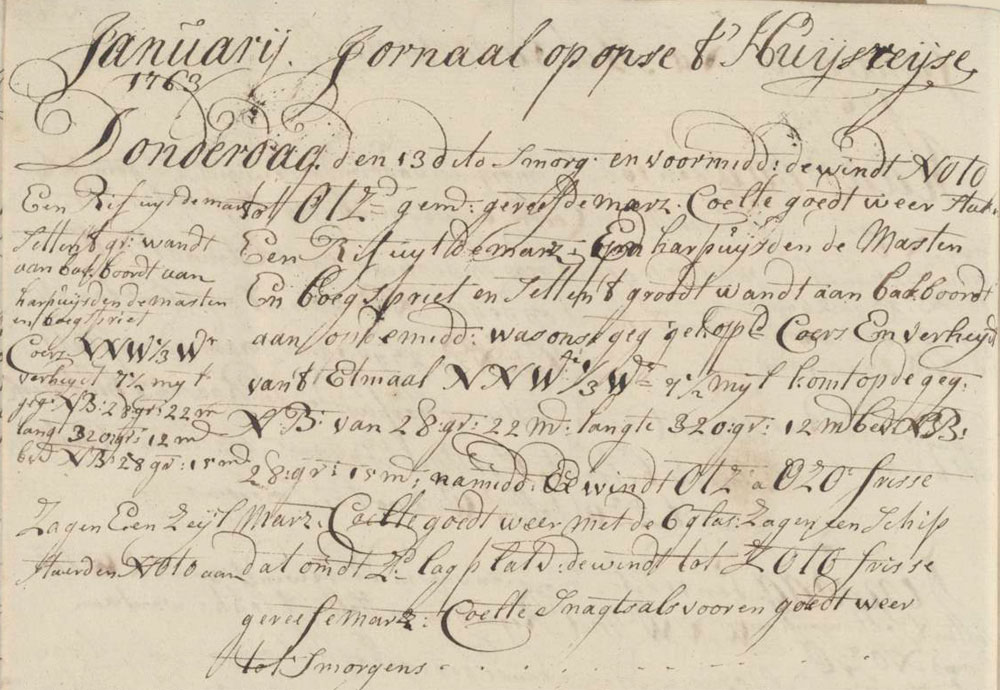 Januarij. Jornaal op opse t' Huijsreijse
1763
Donderdag. den 13 dito Smorg. en voormidd: de windt NOTO
Een Rif uijt de marz
Setten t gr: wandt
aan bakboordt aan
harpuijsden de masten
en boegspriet
Coers NNW 1/3 Wr
verheijd 7 1/2 mijl
geg: NB: 28 gr: 22 m
langt 320 gr: 12 md
bevd NB: 28 gr: 15 md
Zagen Een Zeijl
Stuerden NOTO aan
tot OTZ gemd: gereefde marz. Coelte goedt weer Stak
Een Rif uijt de marz: End harpuijsden de Masten
En boegspriet en Setten t groodt wandt aan bakboordt
aan op de midd: was ons geg gekopd Coers Em verheijd
van t Etmaal NNW 1/3 W 7 1/2 mijl komt op de geg.
NBr van 28 gr: 22 md: langte 320: gr: 12 md bevd NB:
28: gr: 15 m; namidd: de windt OTZ a OZO frisse
Marz. Coelte goedt weer met de 6 glas: Zagen een Schip
dat om d Zd lag platd: de windt tot ZOTO frisse
gereefde Marz: Coelte Snagts als vooren goedt weer
tot Smorgens . . . . . . .